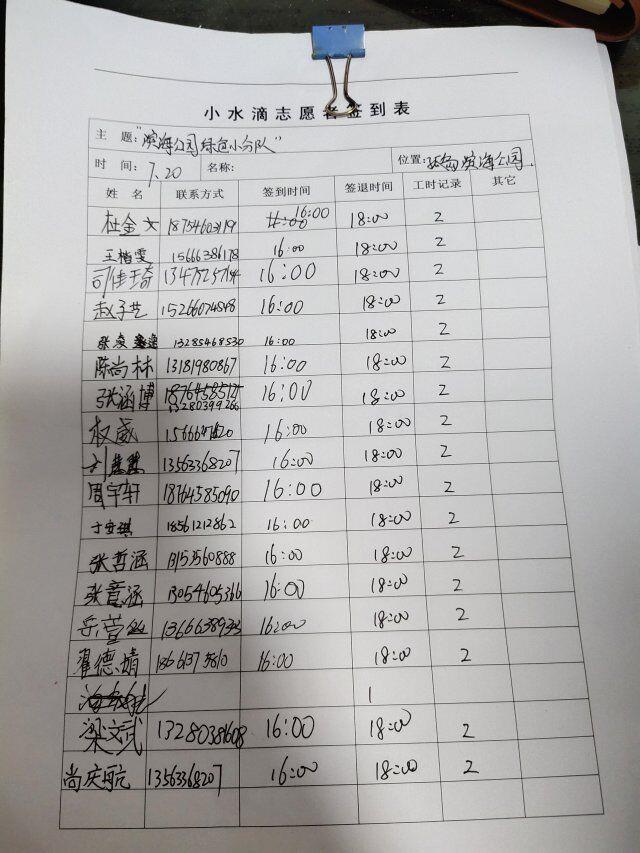 小水滴志愿者签到表
主 题：“滨海公园绿色小分队”
时 间：7.20 名称： 位置：滨海公园
姓 名 联系方式 签到时间 签退时间 工时记录 其它
杜金文 18754603119 16:00 18:00 2
王楷雯 15666386178 16:00 18:00 2
司佳琦 16:00 18:00 2
赵子艺 15266074848 16:00 18:00 2
张 13285468530 16:00 18:00 2
陈尚林 13181980867 16:00 18:00 2
张涵博 13280399266 16:00 18:00 2
权威 16:00 18:00 2
刘 13563368207 16:00 18:00 2
周宇轩 18764585090 16:00 18:00 2
于安琪 18561212862 16:00 18:00 2
张哲涵 16:00 18:00 2
张意涵 13054605366 16:00 18:00 2
岳萱 16:00 18:00 2
翟德靖 16:00 18:00 2
梁文武 16:00 18:00 2
尚庆航 13563368207 16:00 18:00 2